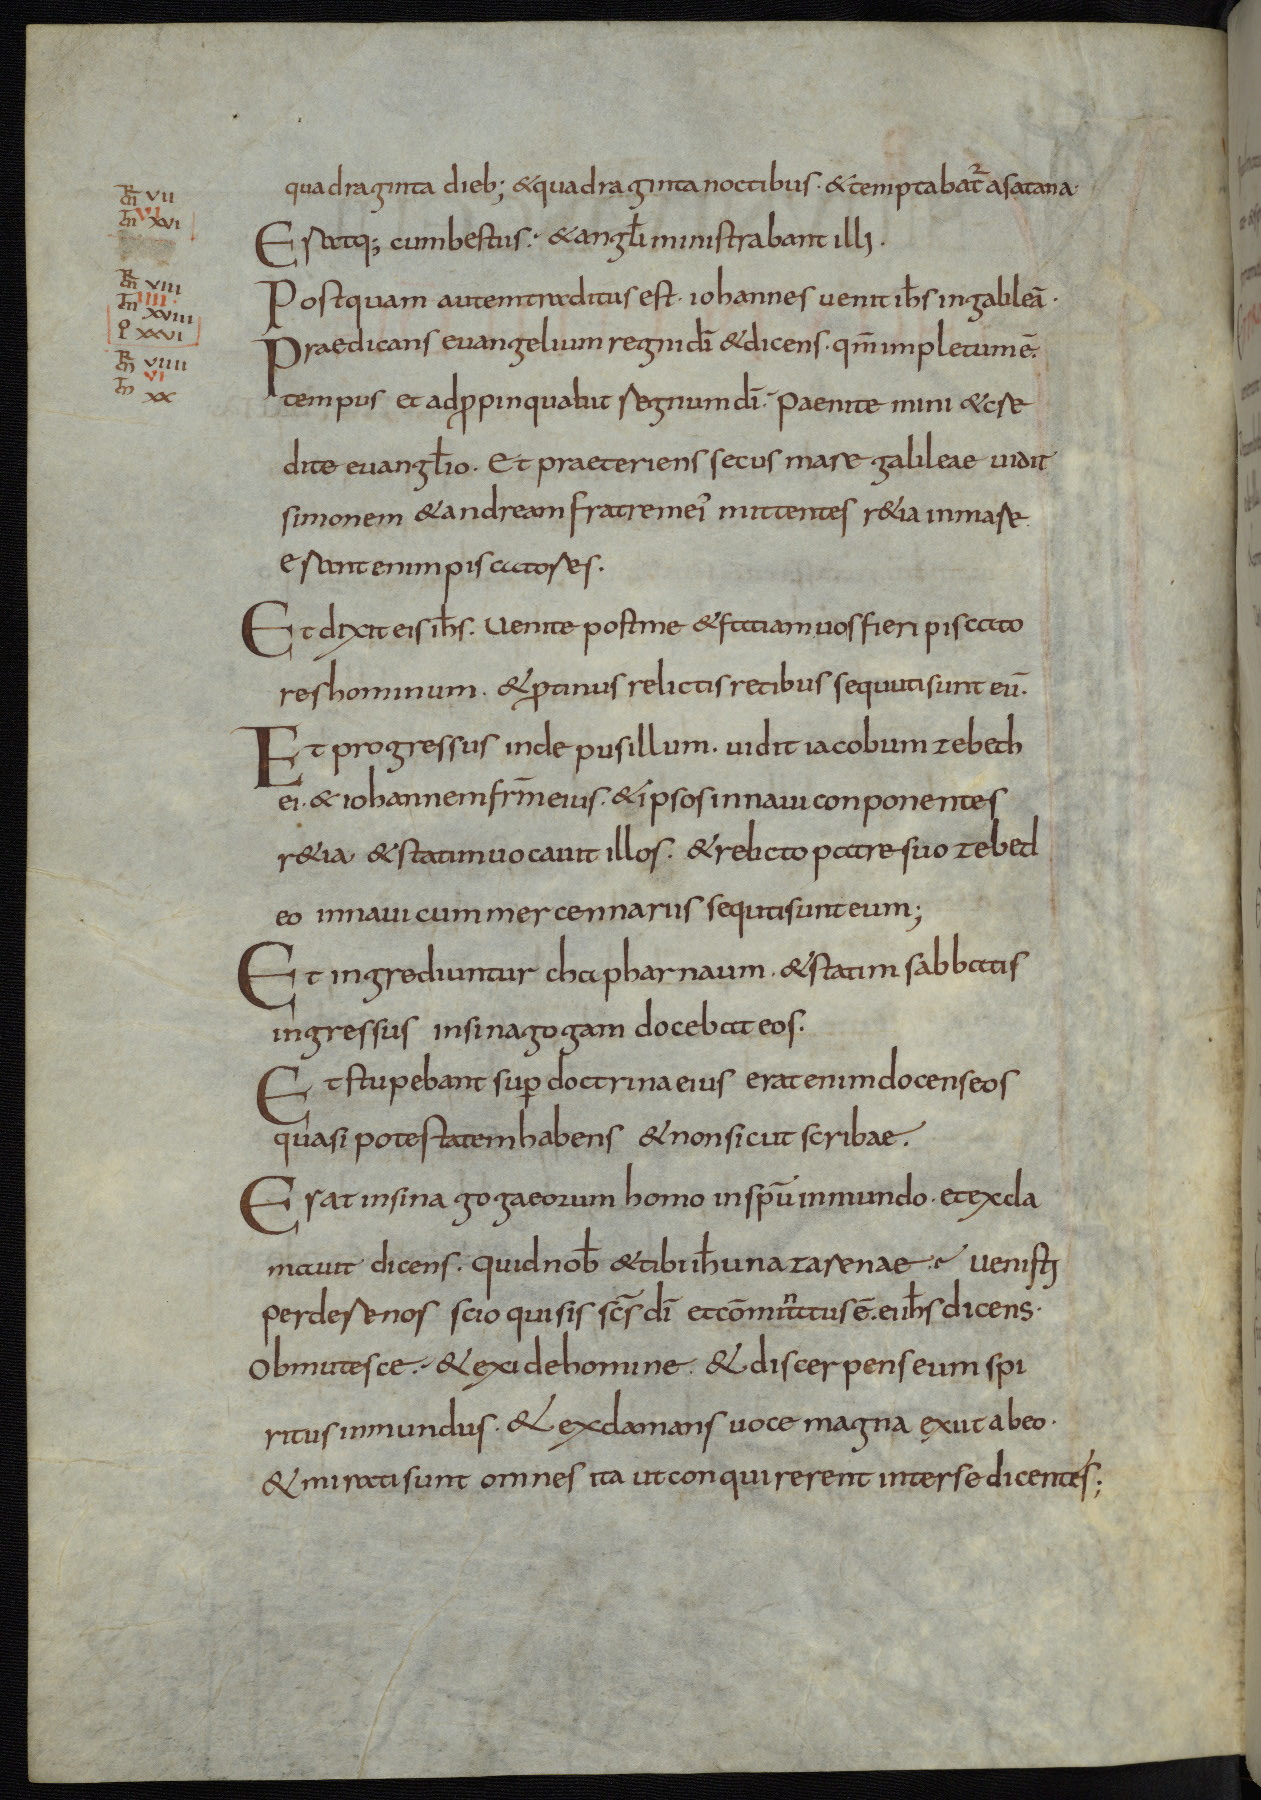 quadraginta dieb; & quadraginta noctibus · & temptabat̄ a satana
Eratq; cum bestiis · & angl̄i ministrabant illi ·
Postquam autem traditus est · iohannes uenit ih̄s in galileā ·
Praedicans euangelium regni dī & dicens · qm̄ impletum ē ·
tempus et adpropinquabit regnum dī · Paenite mini & cre
dite euangl̄io · Et praeteriens secus mare galileae uidit
simonem & andream fratrem ei' mittentes r&ia in mare
erant enim piscatores ·
Et dixit eis ih̄s · Uenite post me & faciam uos fieri piscato
res hominum · & protinus relictis retibus sequuti sunt eū ·
Et progressus inde pusillum · uidit iacobum zebed
ei · & iohannem frm̄ eius · & ipsos in naui conponentes
r&ia & statim uocauit illos · & relicto patre suo zebed
eo in naui cum mercennariis sequti sunt eum;
Et ingrediuntur chapharnaum · & statim sabbatis
ingressus in sinagogam docebat eos ·
Et stupebant sup̄ doctrina eius erat enim docens eos
quasi potestatem habens & non sicut scribae ·
Erat in sinagoga eorum homo in spū inmundo · et excla
mauit dicens · quid nob̄ & tibi ih̄u nazarenae · uenisti
perdere nos scio qui sis sc̄s dī et cōminatus ē · ei ih̄s dicens ·
Obmutesce · & exi de homine · & discerpens eum spi
ritus inmundus · & exclamans uoce magna exiit ab eo ·
& mirati sunt omnes ita ut conquirerent inter se dicentes;
VII
VI
XVI
VIII
IIII
XVIII
XXVI
VIIII
VI
XX